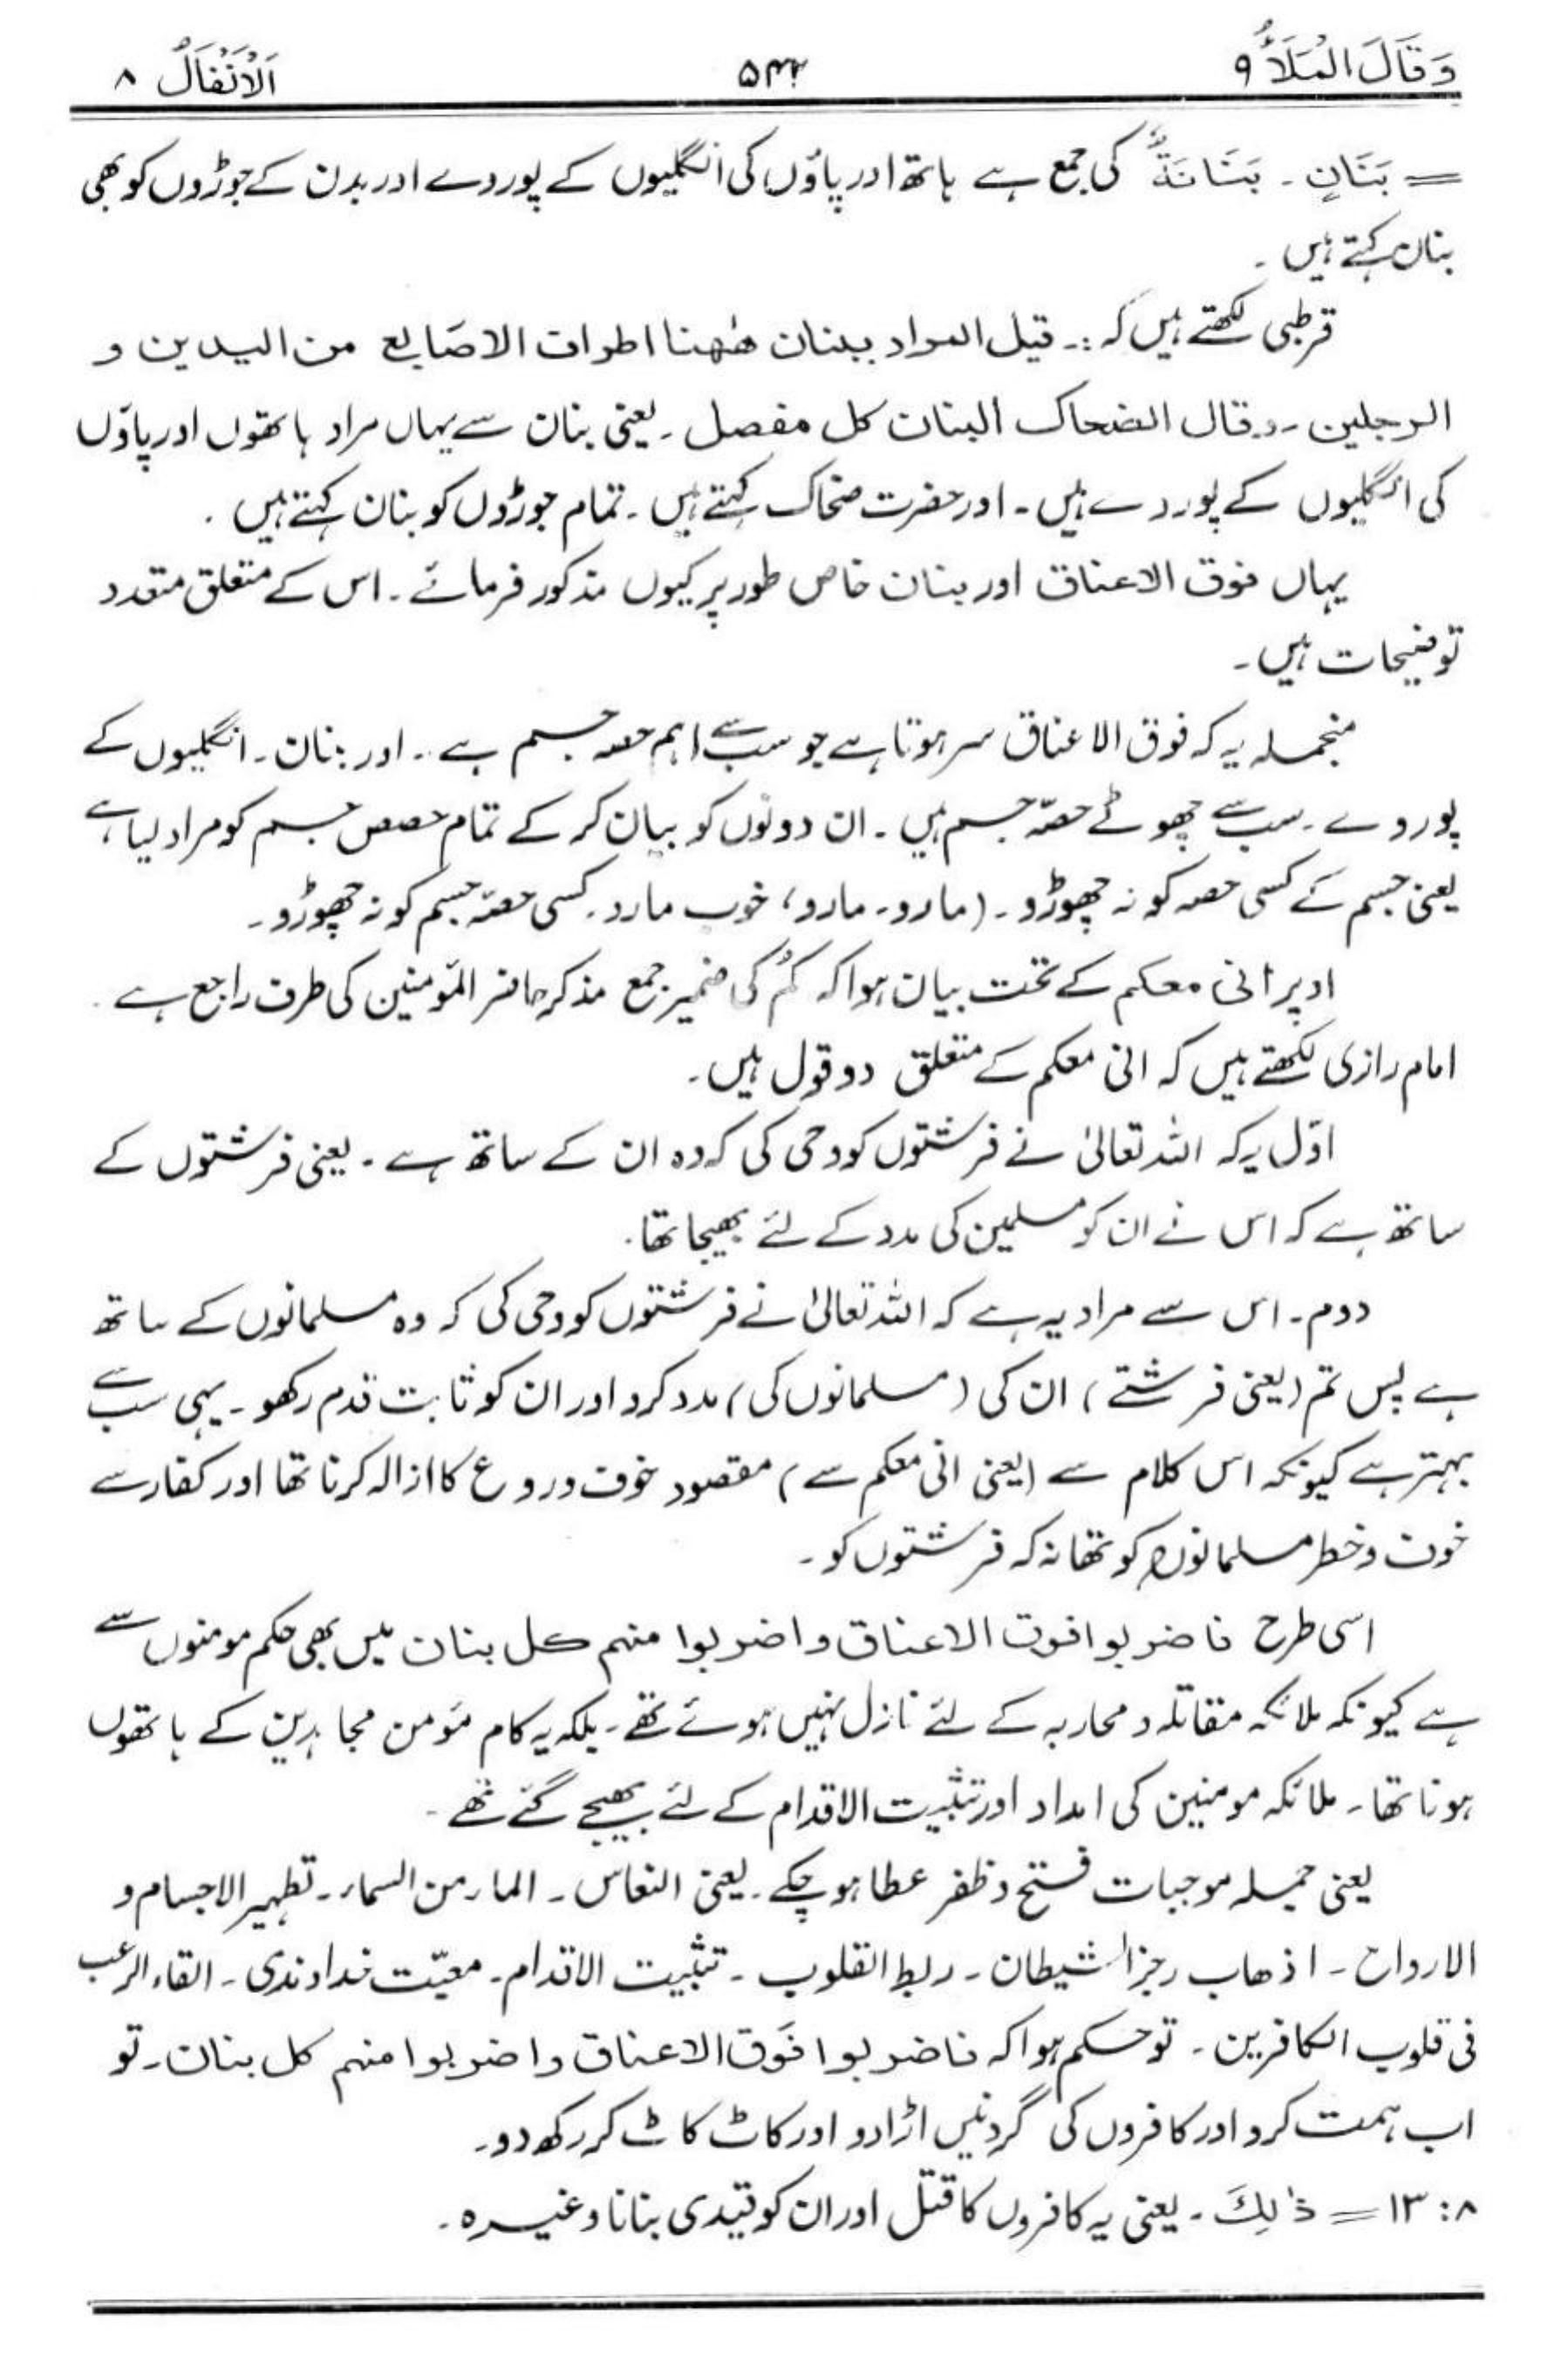 وَقَالَ الْمَلَأُ ۹ ۵۴۲ اَلْاَنْفَالُ ۸
= بَنَانٍ ۔ بَنَانَةٌ کی جمع ہے ہاتھ اور پاؤں کی انگلیوں کے پوروے اور بدن کے جوڑوں کو بھی
بنان کہتے ہیں ۔
قرطبی لکھتے ہیں کہ :۔ قیل المراد ببنان ھٰھنا اطراف الاصابع من الیدین و
الرجلین ۔ وقال الضحاک البنان کل مفصل ۔ یعنی بنان سے یہاں مراد ہاتھوں اور پاؤں
کی انگلیوں کے پوردے ہیں ۔ اور حضرت ضحاک کہتے ہیں ۔ تمام جوڑوں کو بنان کہتے ہیں ۔
یہاں فوق الاعناق اور بنان خاص طور پر کیوں مذکور فرمائے ۔ اس کے متعلق متعدد
توضیحات ہیں ۔
منجملہ یہ کہ فوق الاعناق سر ہوتا ہے جو سب سے اہم حصہ جسم ہے ۔ اور بنان ۔ انگلیوں کے
پوروے ۔ سب سے چھوٹے حصّہ جسم ہیں ۔ ان دونوں کو بیان کر کے تمام حصص جسم کو مراد لیا ہے
یعنی جسم کے کسی حصہ کو نہ چھوڑو ۔ (مارو ۔ مارو، خوب مارو ۔ کسی حصّہ جسم کو نہ چھوڑو ۔
اوپر انی معکم کے تحت بیان ہوا کہ کُمْ کی ضمیر جمع مذکر حاضر المؤمنین کی طرف راجع ہے ۔
امام رازی لکھتے ہیں کہ انی معکم کے متعلق دو قول ہیں ۔
اوّل یہ کہ اللہ تعالیٰ نے فرشتوں کو وحی کی کہ وہ ان کے ساتھ ہے ۔ یعنی فرشتوں کے
ساتھ ہے کہ اس نے ان کو مسلمین کی مدد کے لئے بھیجا تھا ۔
دوم ۔ اس سے مراد یہ ہے کہ اللہ تعالیٰ نے فرشتوں کو وحی کی کہ وہ مسلمانوں کے ساتھ
ہے پس تم (یعنی فرشتے) ان کی (مسلمانوں کی) مدد کرو اور ان کو ثابت قدم رکھو ۔ یہی سب سے
بہتر ہے کیونکہ اس کلام سے (یعنی انی معکم سے) مقصود خوف و روع کا ازالہ کرنا تھا اور کفار سے
خوف و خطر مسلمانوں کو تھا نہ کہ فرشتوں کو ۔
اسی طرح فاضربوا فوق الاعناق واضربوا منہم کل بنان میں بھی حکم مومنوں سے
ہے کیونکہ ملائکہ مقاتلہ و محاربہ کے لئے نازل نہیں ہوئے تھے ۔ بلکہ یہ کام مؤمن مجاہدین کے ہاتھوں
ہونا تھا ۔ ملائکہ مومنین کی امداد اور تثبیت الاقدام کے لئے بھیجے گئے تھے ۔
یعنی جملہ موجبات فتح و ظفر عطا ہو چکے ۔ یعنی النعاس ۔ الماء من السماء ۔ تطہیر الاجسام و
الارواح ۔ اذھاب رجز الشیطان ۔ ربط القلوب ۔ تثبیت الاقدام ۔ معیّت خداوندی ۔ القاء الرعب
فی قلوب الکافرین ۔ تو حکم ہوا کہ فاضربوا فَوق الاعناق واضربوا منہم کل بنان ۔ تو
اب ہمت کرو اور کافروں کی گردنیں اڑا دو اور کاٹ کاٹ کر رکھ دو ۔
۸ : ۱۳ = ذٰلِکَ ۔ یعنی یہ کافروں کا قتل اور ان کو قیدی بنانا وغیرہ ۔